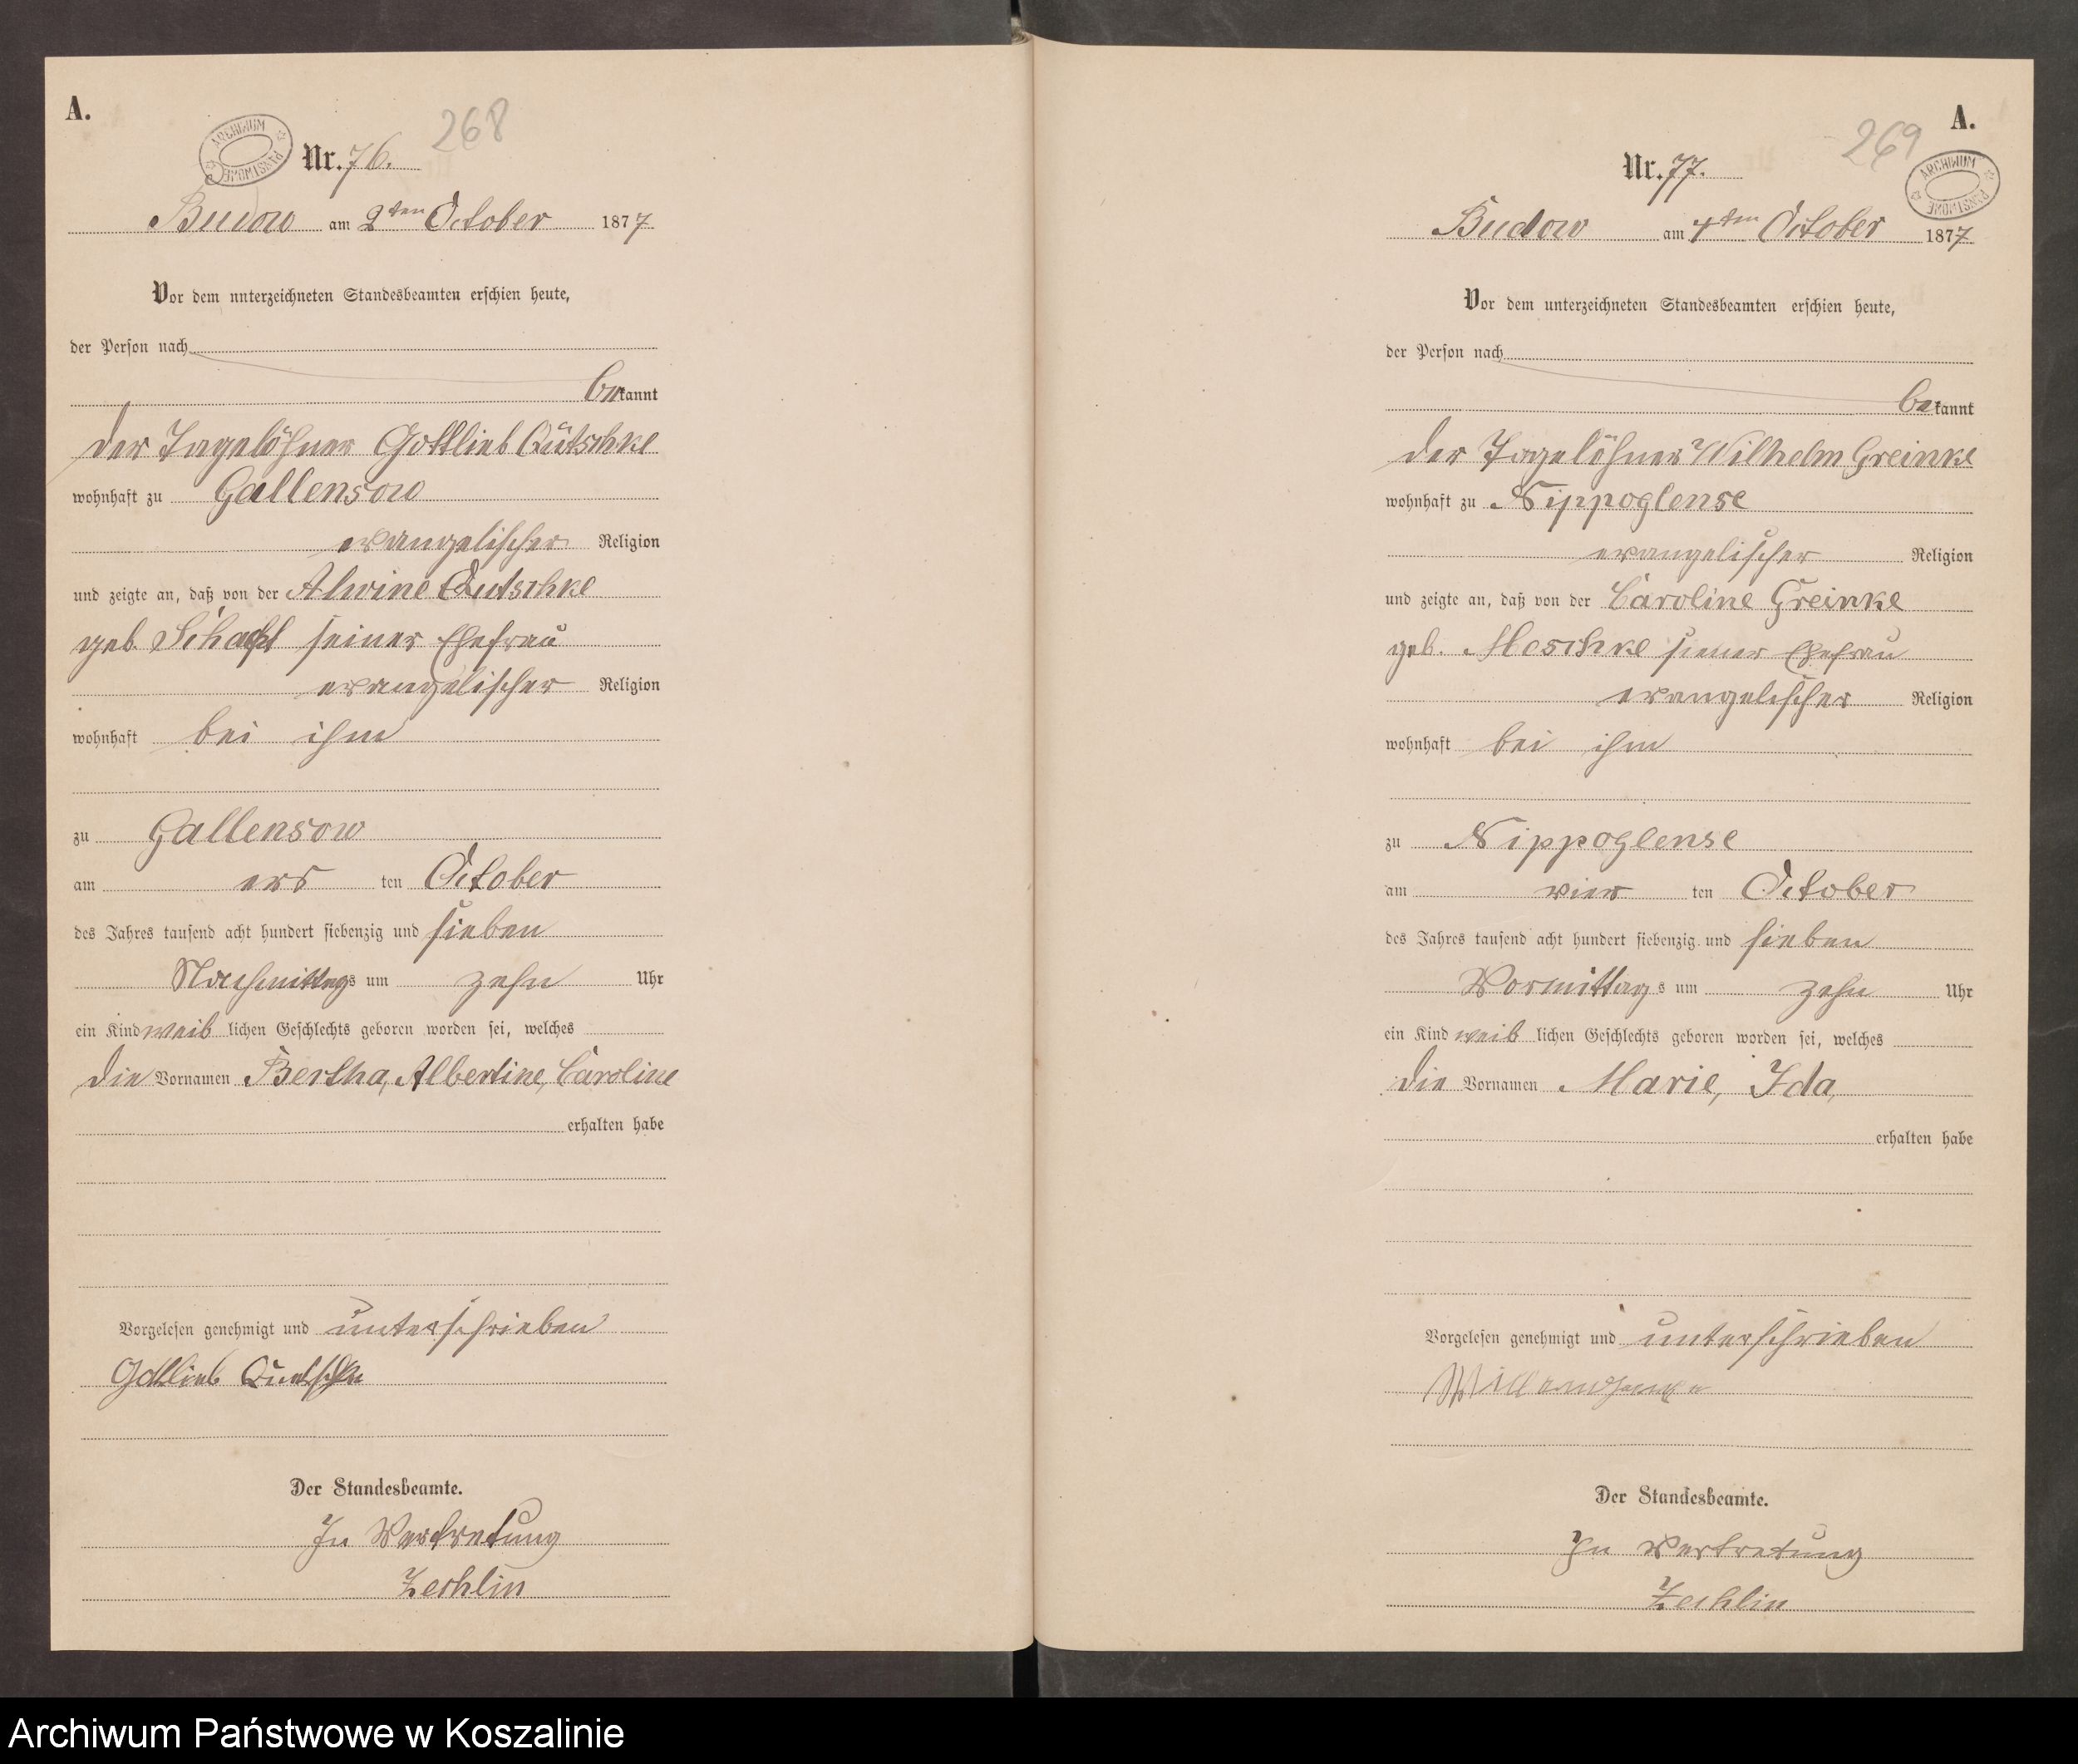 A.
ARCHIWUM PAŃSTWOWE
268
Nr. 76.
Budow am 2ten October 1877
Vor dem unterzeichneten Standesbeamten erschien heute,
der Person nach
bekannt
der Tagelöhner Gottlieb Qütschke
wohnhaft zu Gallensow
evangelischer Religion
und zeigte an, daß von der Alwine Qutschke
geb. seiner Ehefrau
evangelischer Religion
wohnhaft bei ihm
zu Gallensow
am ers ten October
des Jahres tausend acht hundert siebenzig und sieben
Nachmittags um zehn Uhr
ein Kind weib lichen Geschlechts geboren worden sei, welches
die Vornamen Bertha, Albertine, Caroline
erhalten habe
Vorgelesen genehmigt und unterschrieben
Gottlieb
Der Standesbeamte.
In Vertretung
Zechlin
A.
269
ARCHIWUM PAŃSTWOWE
Nr. 77.
Budow am 4ten October 1877
Vor dem unterzeichneten Standesbeamten erschien heute,
der Person nach
bekannt
der Tagelöhner Wilhelm Greinke
wohnhaft zu Nippoglense
evangelischer Religion
und zeigte an, daß von der Caroline Greinke
geb. Moschke seiner Ehefrau
evangelischer Religion
wohnhaft bei ihm
zu Nippoglense
am vier ten October
des Jahres tausend acht hundert siebenzig und sieben
Vormittags um zehn Uhr
ein Kind weib lichen Geschlechts geboren worden sei, welches
die Vornamen Marie, Ida,
erhalten habe
Vorgelesen genehmigt und unterschrieben
Der Standesbeamte.
In Vertretung
Zechlin
Archiwum Państwowe w Koszalinie